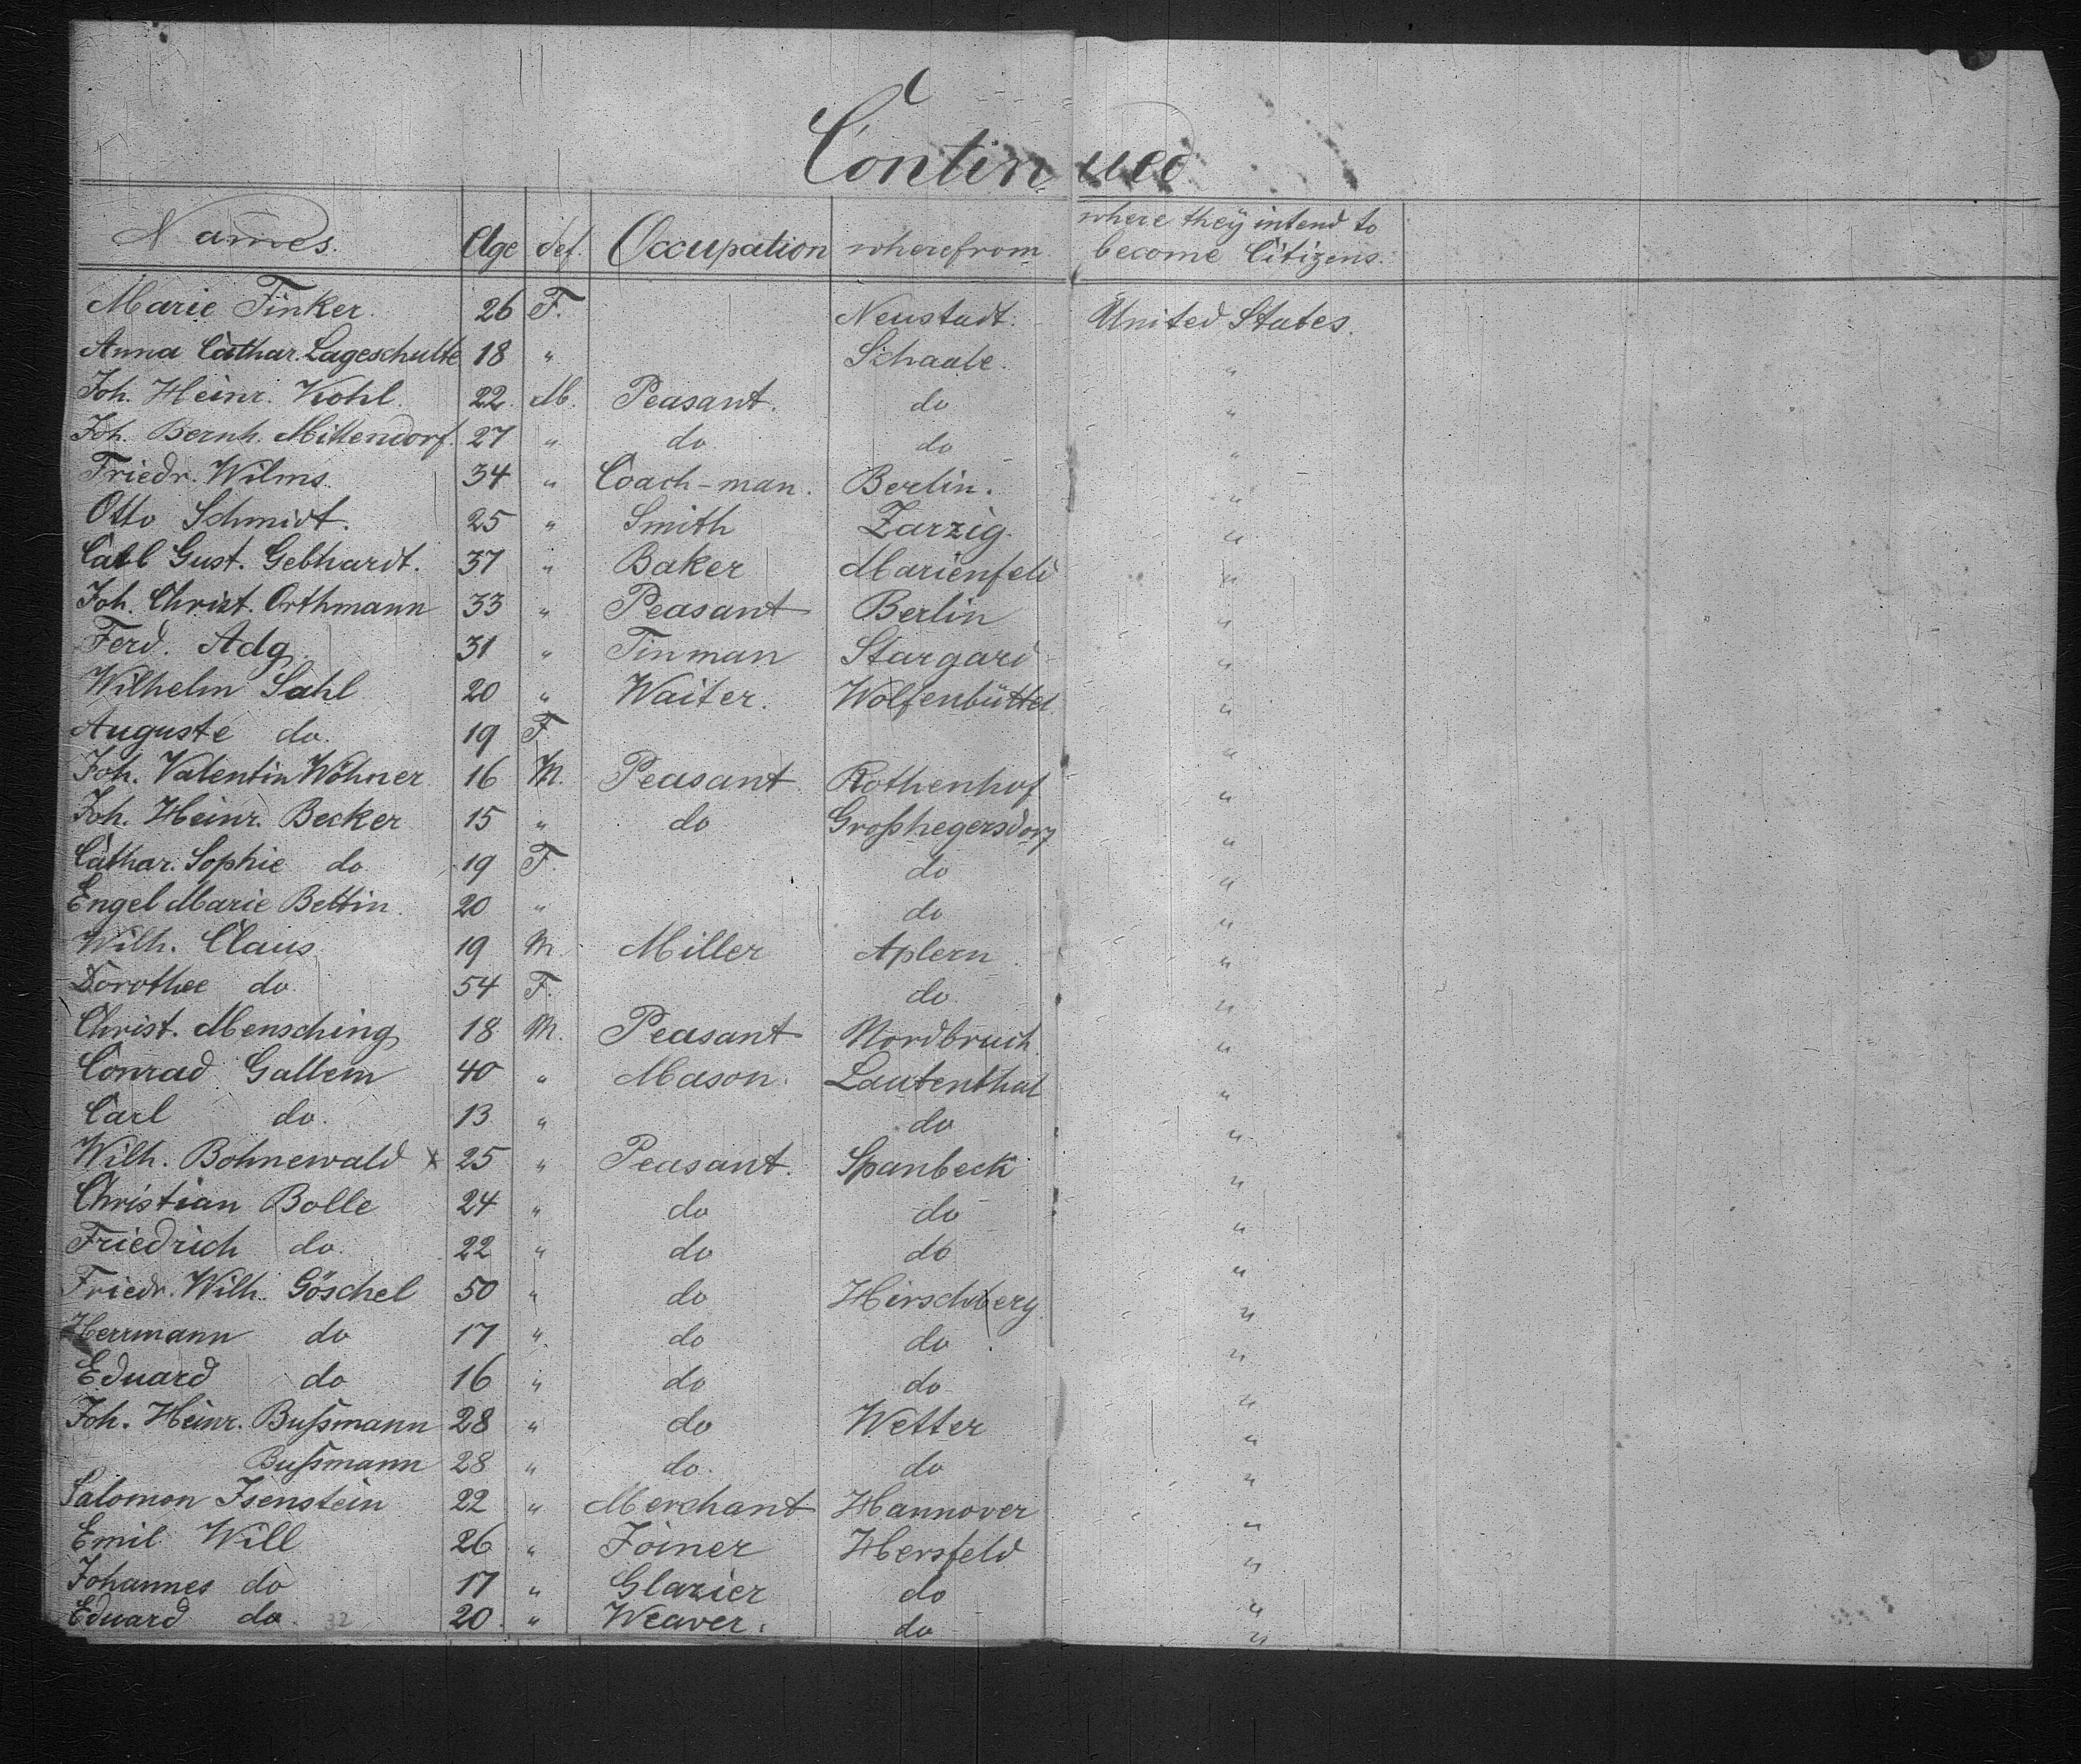 Continued
Names. Age Sex. Occupation wherefrom where they intend to become Citizens.
Marie Tinker. 26 F. Neustadt. United States.
Anna Cathar. Lageschulte 18 " Schaale. "
Joh. Heinr. Kohl. 22. M. Peasant. do "
Joh. Bernh. Mittendorf. 27 " do do "
Friedr. Wilms. 34 " Coach-man. Berlin. "
Otto Schmidt. 25 " Smith Zarzig. "
Carl Gust. Gebhardt. 37 " Baker Marienfeld "
Joh. Christ. Orthmann 33 " Peasant Berlin "
Ferd. Adg. 31 " Tinman Stargard "
Wilhelm Sahl 20 " Waiter. Wolfenbüttel. "
Auguste do. 19 F. "
Joh. Valentin Wöhner 16 M. Peasant Rothenhof "
Joh. Heinr. Becker 15 " do Großhegersdorf "
Cathar. Sophie do 19 F. do "
Engel Marie Bettin. 20 " do "
Wilh. Claus. 19 M. Miller Aplern "
Dorothee do. 54 F. do. "
Christ. Mensching 18 M. Peasant Nordbruch "
Conrad Gallem 40 " Mason. Lautenthal "
Carl do. 13 " do "
Wilh. Bohnewald x 25 " Peasant. Spanbeck "
Christian Bolle 24 " do do "
Friedrich do. 22 " do do "
Friedr. Wilh. Göschel 50 " do Hirschberg. "
Herrmann do 17 " do do "
Eduard do 16 " do do "
Joh. Heinr. Bußmann 28 " do Wetter "
Bußmann 28 " do. do "
Salomon Isenstein 22 " Merchant Hannover "
Emil Will 26 " Joiner Hersfeld "
Johannes do 17 " Glazier do "
Eduard do. 32 20. " Weaver. do "